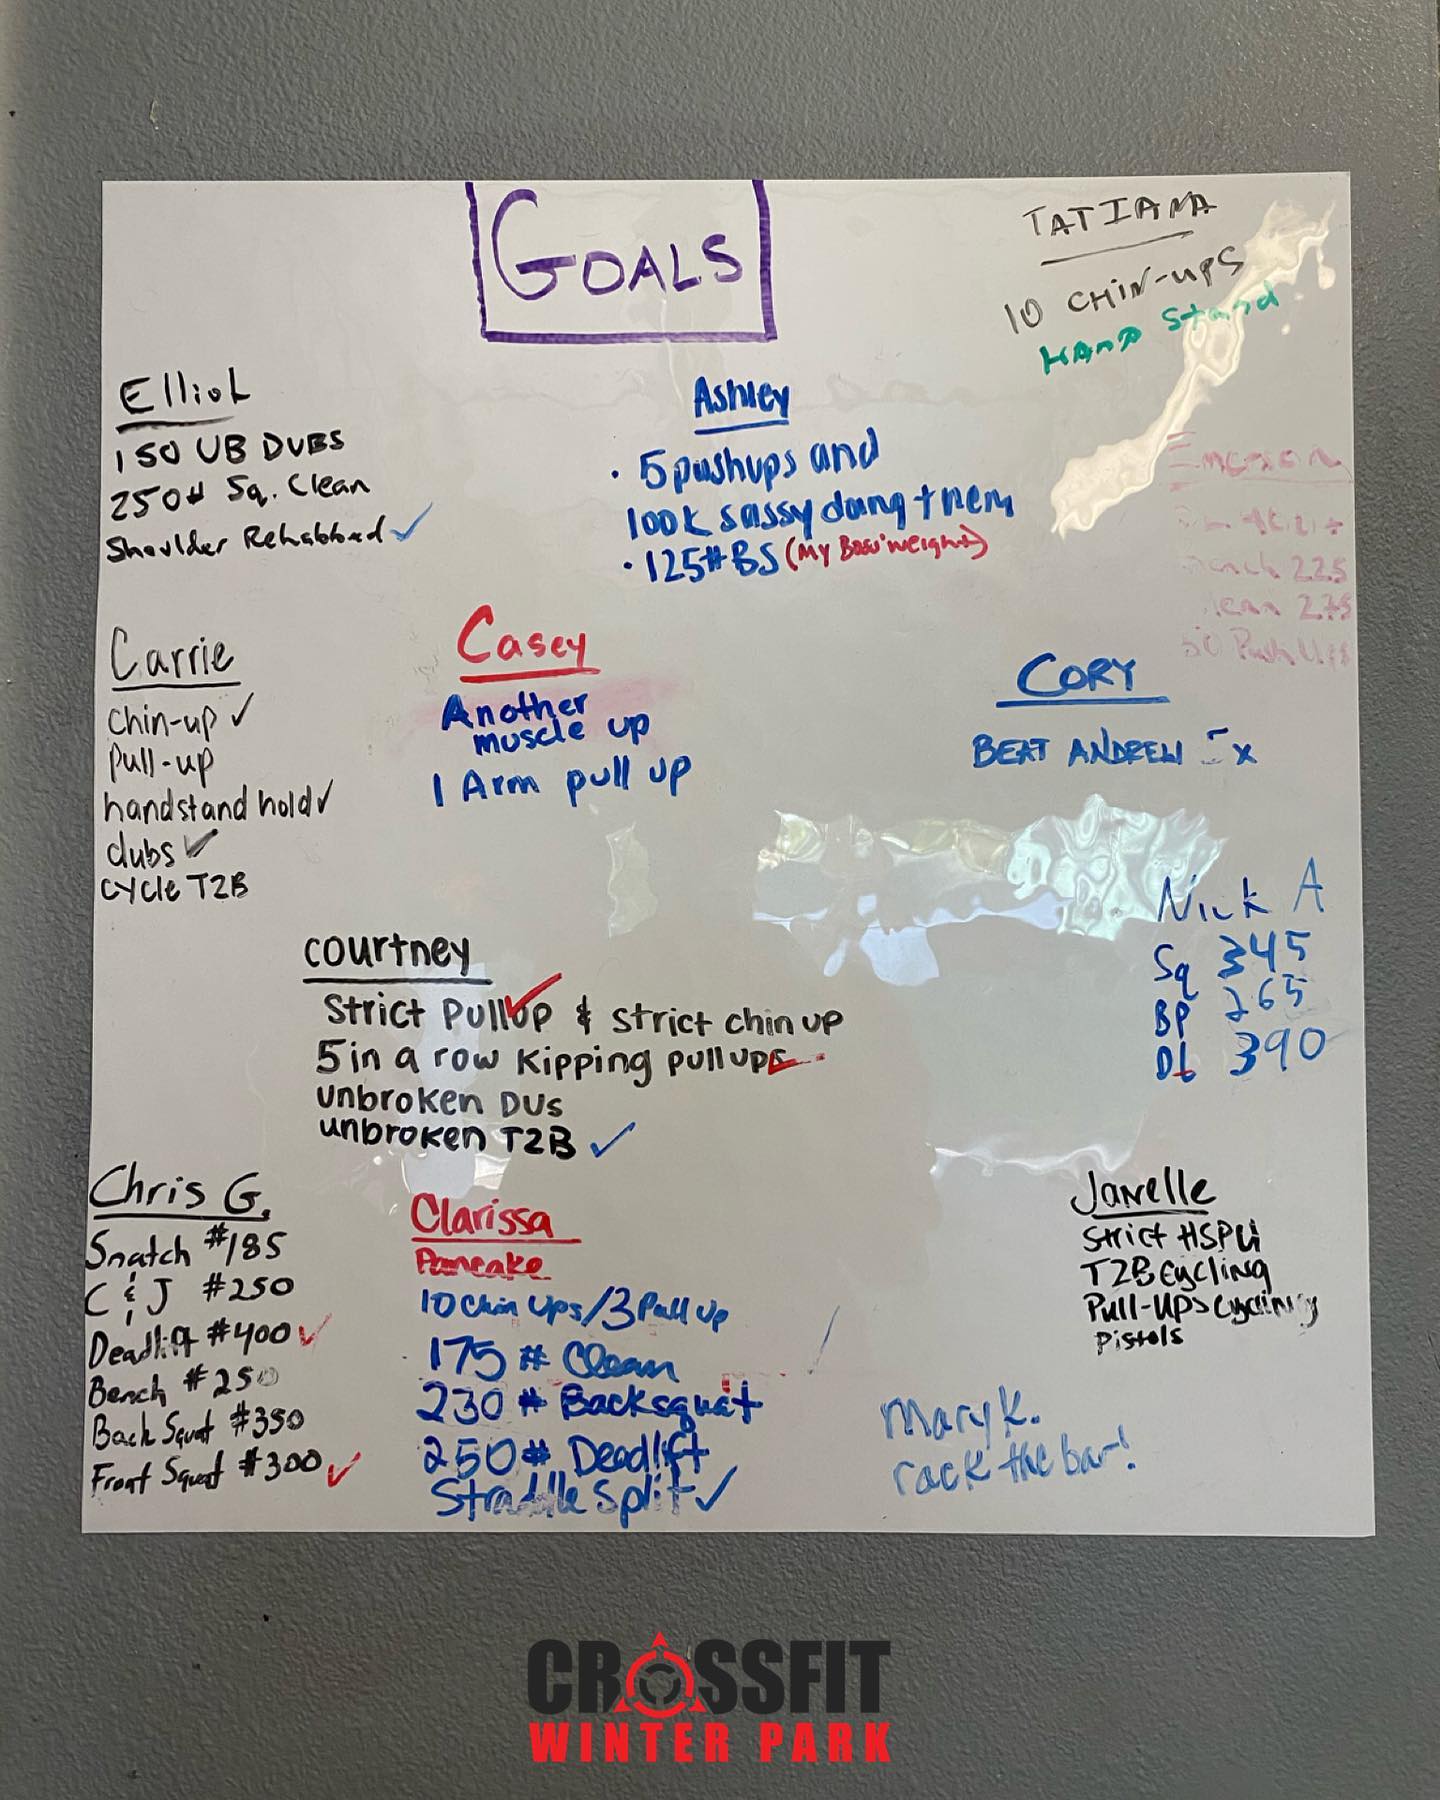 GOALS
TATIANA
10 CHIN-UPS
HAND Stand
Elliot
150 UB DUBS
250# Sq. Clean
Shoulder Rehabbed ✓
Ashley
· 5 pushups and
100k sassy doing them
· 125# BS (My Body weight)
Emerson
225
275
50 Push Ups
Carrie
chin-up ✓
pull-up
handstand hold ✓
dubs ✓
cycle T2B
Casey
Another
muscle up
1 Arm pull up
CORY
BEAT ANDREW 5x
Nick A
Sq 345
BP 265
DL 390
courtney
Strict Pullup ✓ & strict chin up
5 in a row kipping pull ups ✓
unbroken DUs
unbroken T2B ✓
Chris G.
Snatch #185
C & J #250
Deadlift #400 ✓
Bench #250
Back Squat #350
Front Squat #300 ✓
Clarissa
Pancake
10 Chin Ups/3 Pull up
175 # Clean
230 # Backsquat
250 # Deadlift
Straddle Split ✓
Janelle
Strict HSPU
T2B Cycling
Pull-Ups cycling
Pistols
Mary K.
rack the bar!
CROSSFIT
WINTER PARK